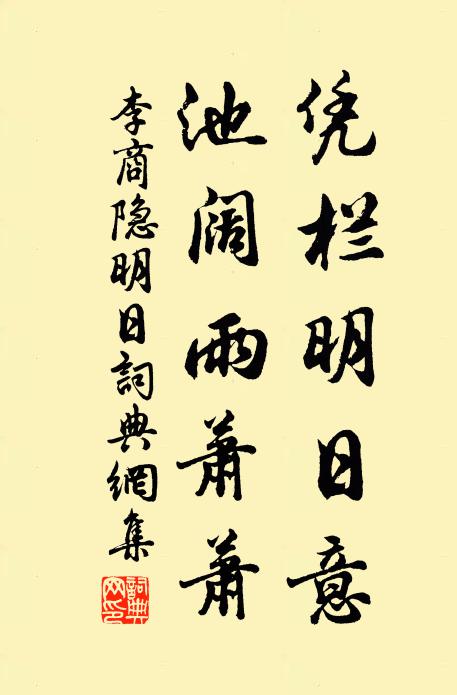 凭栏明日意
池阔雨萧萧
李商隐明日詞典網集
詞典網印